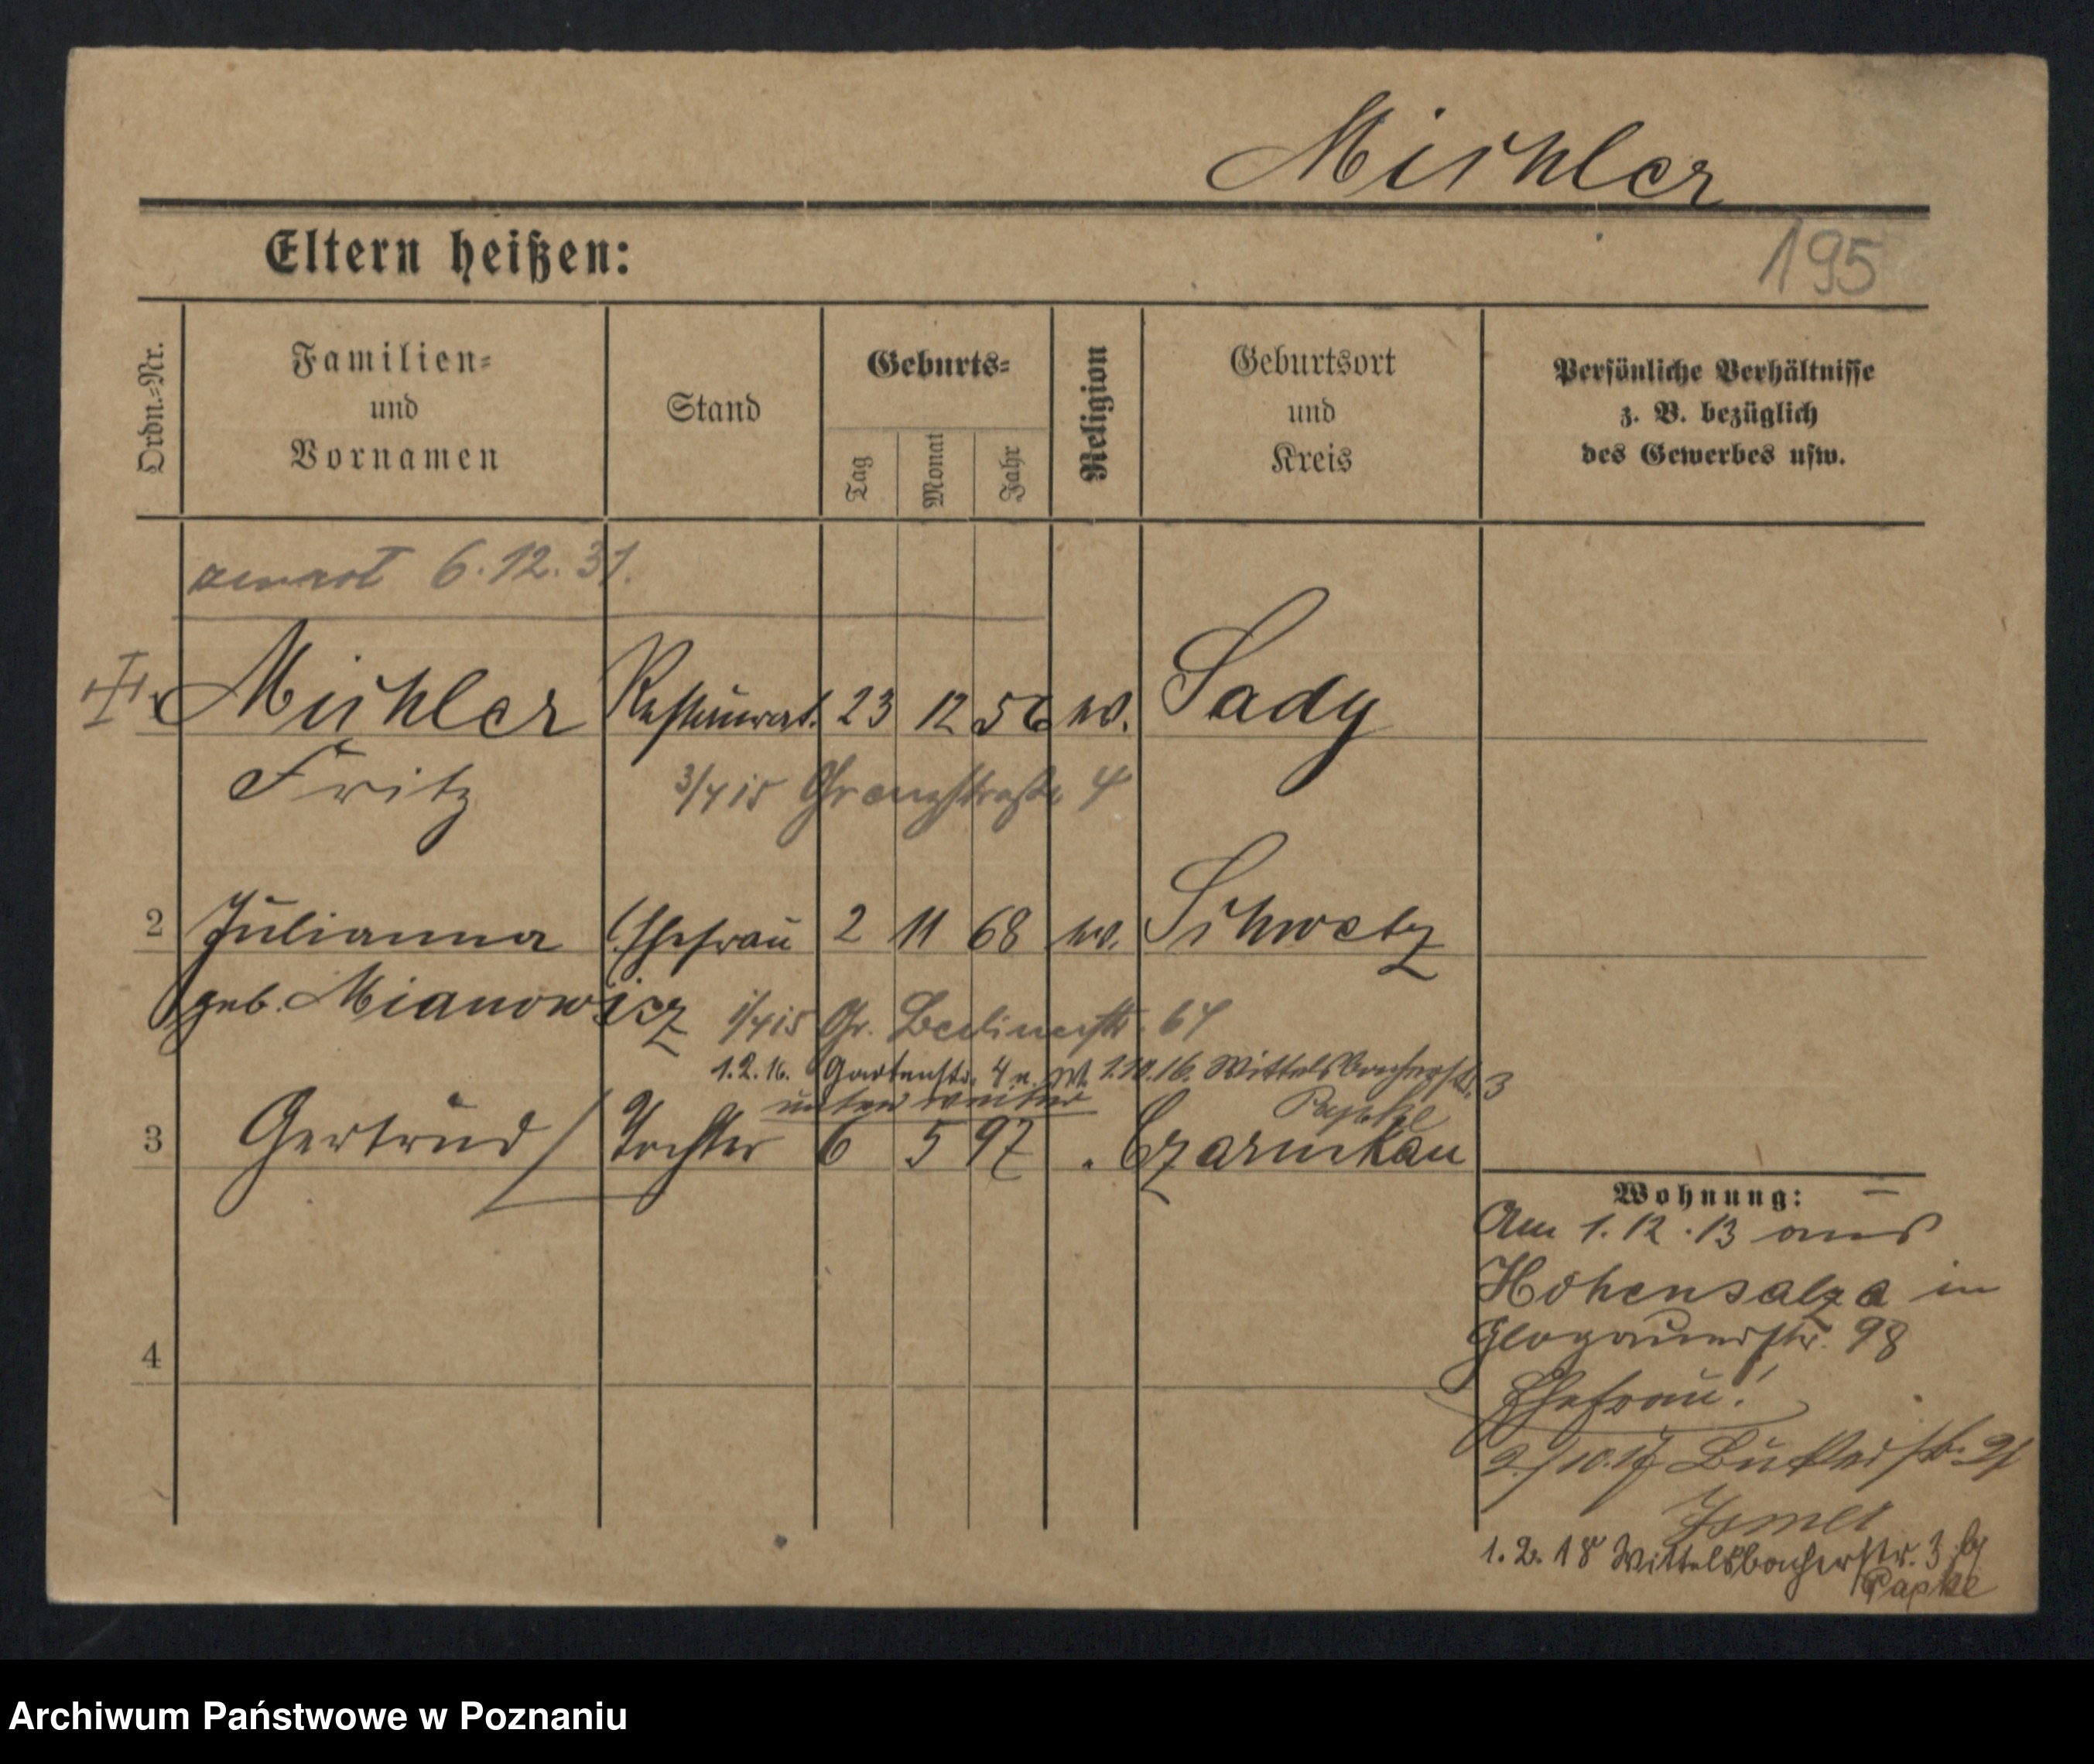 Mischler
195
Eltern heißen:
Ordn.=Nr.
Familien=
und
Vornamen
Stand
Geburts=
Tag
Monat
Jahr
Religion
Geburtsort
und
Kreis
Persönliche Verhältnisse
z. B. bezüglich
des Gewerbes usw.
zmarł 6.12.31.
Mischler Restaurat. 23 12 56 ev. Sady
Fritz
3/4 15 Grenzstraße 4
2 Julianna Ehefrau 2 11 68 ev. Schwetz
geb. Mianowicz
1/4 15 Gr. Berlinerstr. 64
1.2.16. Gartenstr. 4 1.10.16. Wittelsbacherstr. 3
unten weiter Papke
3 Gertrud Tochter 6 5 97 Czarnikau
Wohnung:
Am 1.12.13 aus
Hohensalza in
Glogauerstr. 98
4
Ehefrau!
2/10.17 Bukerstr. 21
1.2.18 Wittelsbacherstr. 3 b/
Papke
Archiwum Państwowe w Poznaniu